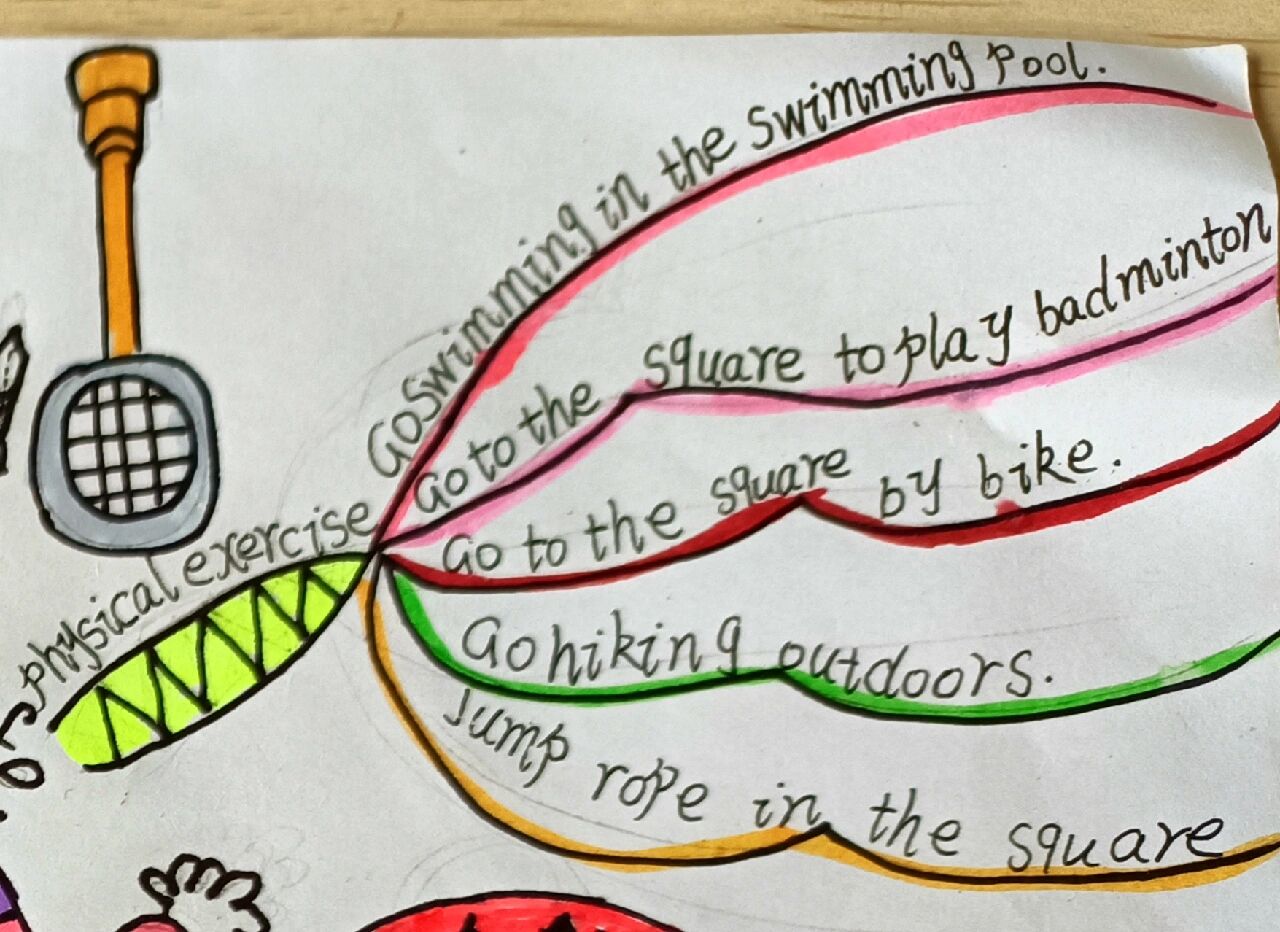 physical exercise
Go Swimming in the swimming pool.
Go to the square to play badminton
Go to the square by bike.
Go hiking outdoors.
Jump rope in the square